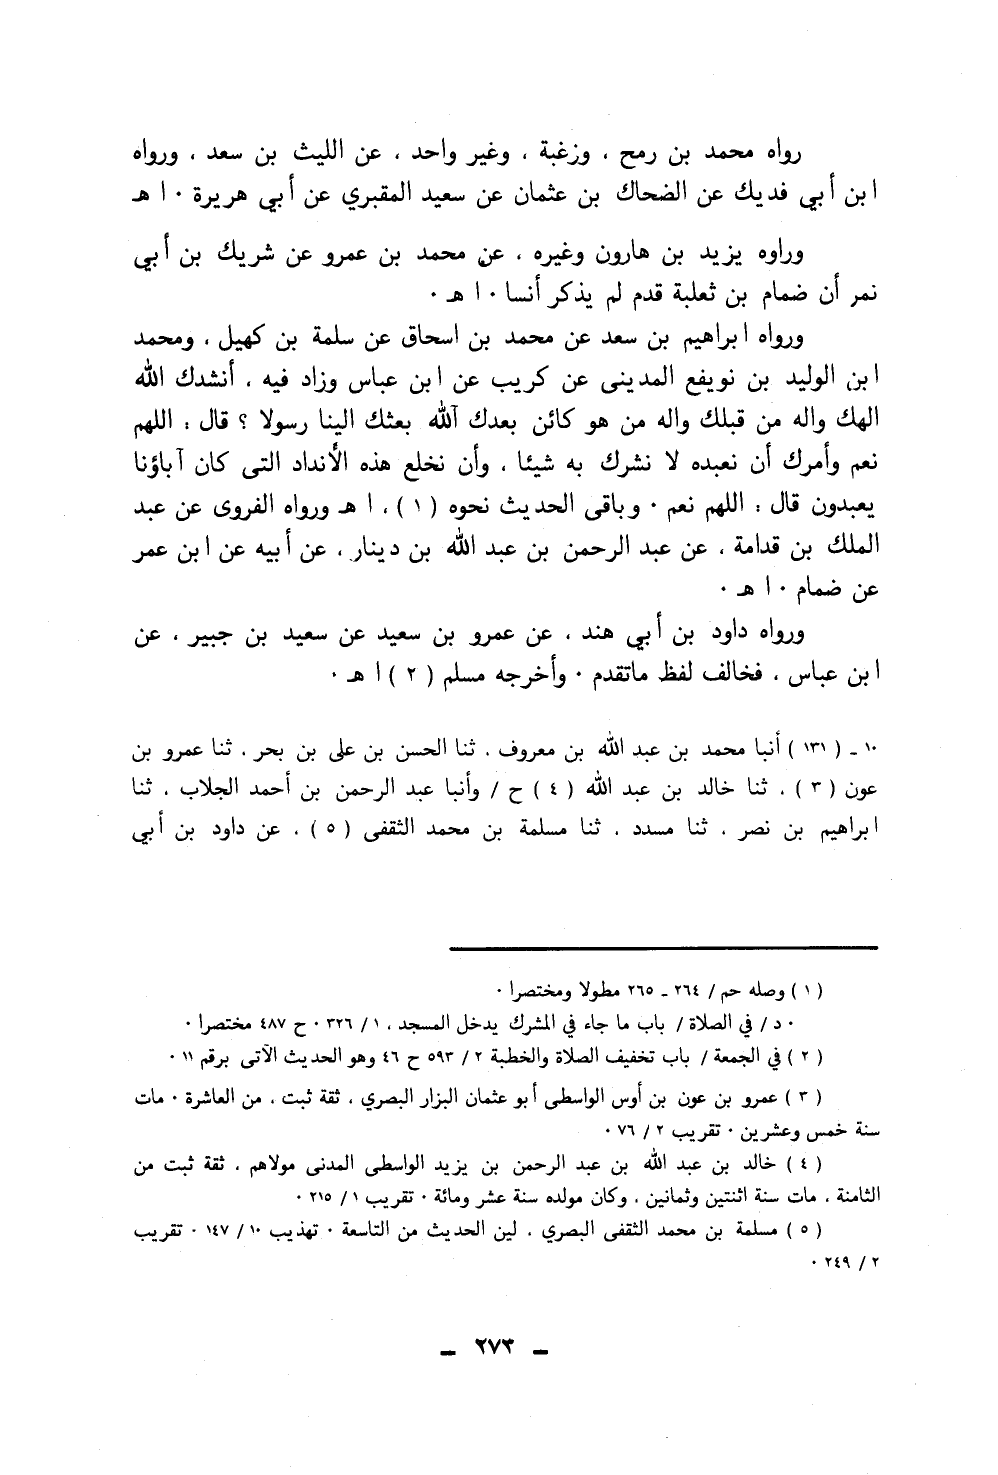 رواه محمد بن رمح ، وزغبة ، وغير واحد ، عن الليث بن سعد ، ورواه
ابن أبي فديك عن الضحاك بن عثمان عن سعيد المقبري عن أبي هريرة ٠ ا هـ
وراوه يزيد بن هارون وغيره ، عن محمد بن عمرو عن شريك بن أبي
نمر أن ضمام بن ثعلبة قدم لم يذكر أنسا ٠ ا هـ ٠
ورواه ابراهيم بن سعد عن محمد بن اسحاق عن سلمة بن كهيل ، ومحمد
ابن الوليد بن نويفع المدينى عن كريب عن ابن عباس وزاد فيه ، أنشدك الله
الهك واله من قبلك واله من هو كائن بعدك آلله بعثك الينا رسولا ؟ قال : اللهم
نعم وأمرك أن نعبده لا نشرك به شيئا ، وأن نخلع هذه الأنداد التى كان آباؤنا
يعبدون قال : اللهم نعم ٠ وباقى الحديث نحوه ( ١ ) ، ا هـ ورواه الفروى عن عبد
الملك بن قدامة ، عن عبد الرحمن بن عبد الله بن دينار ، عن أبيه عن ابن عمر
عن ضمام ٠ ا هـ ٠
ورواه داود بن أبي هند ، عن عمرو بن سعيد عن سعيد بن جبير ، عن
ابن عباس ، فخالف لفظ ماتقدم ٠ وأخرجه مسلم ( ٢ ) ا هـ ٠
١٠ ـ ( ١٣١ ) أنبا محمد بن عبد الله بن معروف ، ثنا الحسن بن على بن بحر ، ثنا عمرو بن
عون ( ٣ ) ، ثنا خالد بن عبد الله ( ٤ ) ح / وأنبا عبد الرحمن بن أحمد الجلاب ، ثنا
ابراهيم بن نصر ، ثنا مسدد ، ثنا مسلمة بن محمد الثقفى ( ٥ ) ، عن داود بن أبي
( ١ ) وصله حم / ٢٦٤ ـ ٢٦٥ مطولا ومختصرا ٠
٠ د / في الصلاة / باب ما جاء في المشرك يدخل المسجد ، ١ / ٣٢٦ ٠ ح ٤٨٧ مختصرا ٠
( ٢ ) في الجمعة / باب تخفيف الصلاة والخطبة ٢ / ٥٩٣ ح ٤٦ وهو الحديث الآتى برقم ١١ ٠
( ٣ ) عمرو بن عون بن أوس الواسطى أبو عثمان البزار البصري ، ثقة ثبت ، من العاشرة ٠ مات
سنة خمس وعشرين ٠ تقريب ٢ / ٧٦ ٠
( ٤ ) خالد بن عبد الله بن عبد الرحمن بن يزيد الواسطى المدنى مولاهم ، ثقة ثبت من
الثامنة ، مات سنة اثنتين وثمانين ، وكان مولده سنة عشر ومائة ٠ تقريب ١ / ٢١٥ ٠
( ٥ ) مسلمة بن محمد الثقفى البصري ، لين الحديث من التاسعة ٠ تهذيب ١٠ / ١٤٧ ٠ تقريب
٢ / ٢٤٩ ٠
ـ ٢٧٣ ـ